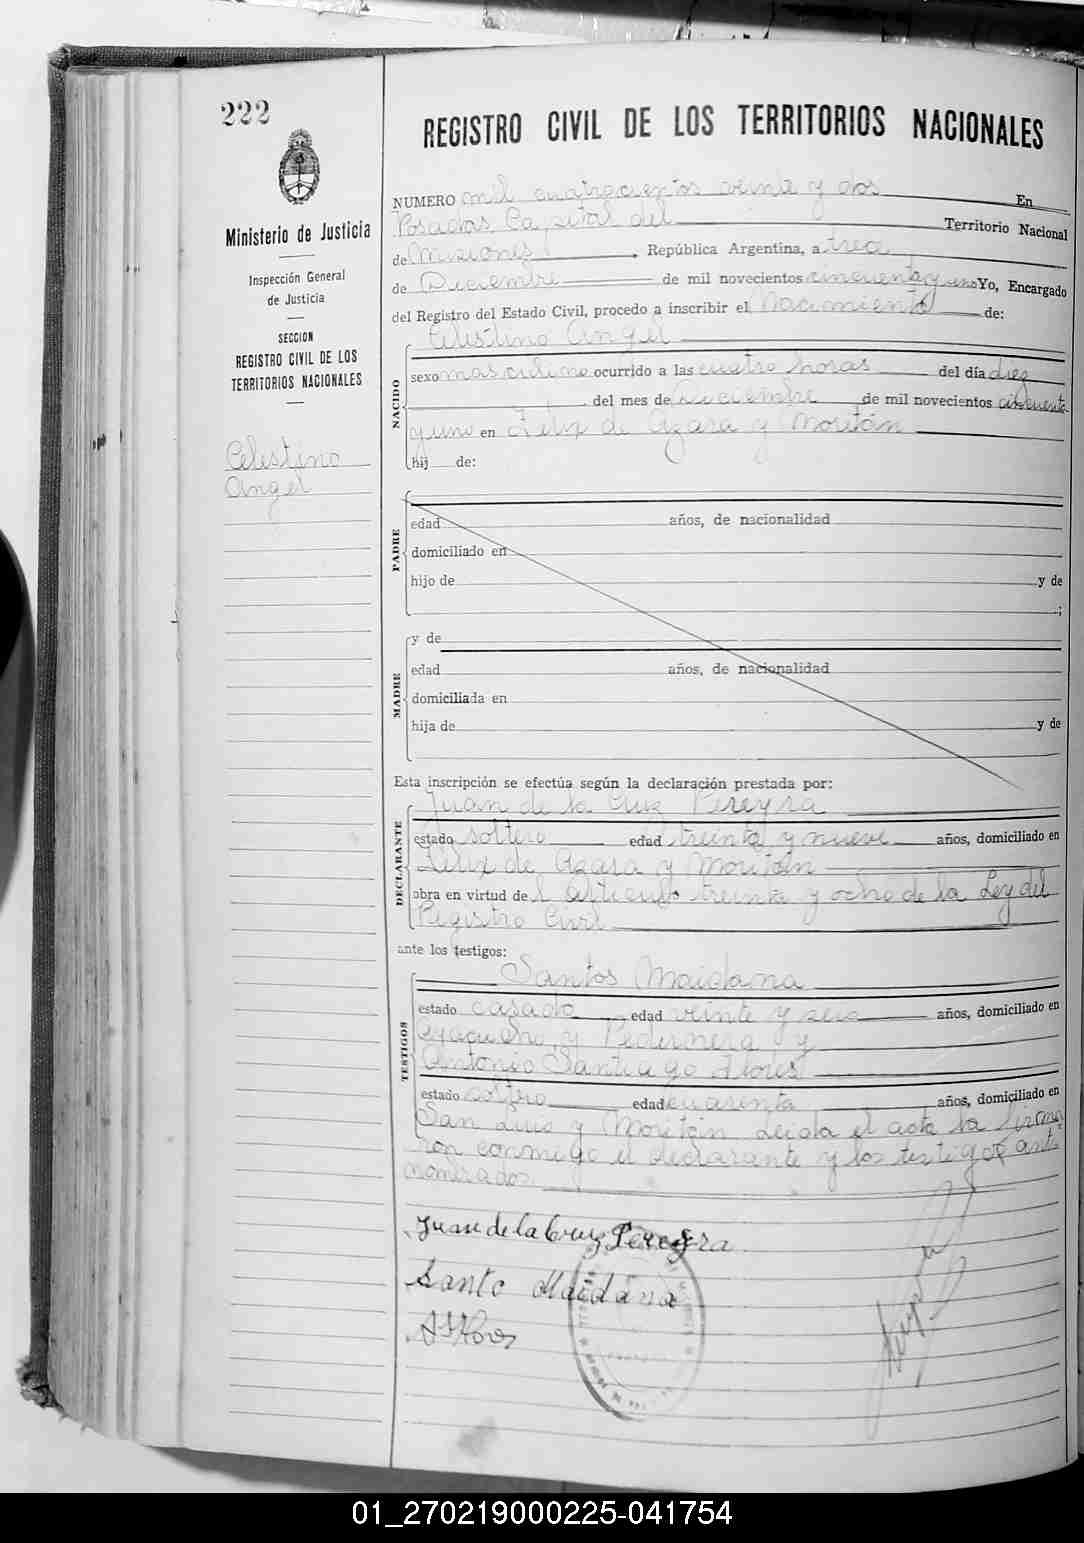 222
REGISTRO CIVIL DE LOS TERRITORIOS NACIONALES
Ministerio de Justicia
Inspección General
de Justicia
SECCION
REGISTRO CIVIL DE LOS
TERRITORIOS NACIONALES
Celestino
Angel
NUMERO mil cuatrocientos veinte y dos En
Posadas, Capital del Territorio Nacional
de Misiones, República Argentina, a trece
de Diciembre de mil novecientos cincuenta y uno Yo, Encargado
del Registro del Estado Civil, procedo a inscribir el Nacimiento de:
NACIDO
Celestino Angel
sexo masculino ocurrido a las cuatro horas del día diez
del mes de Diciembre de mil novecientos cincuenta
y uno en Félix de Azara y Moritán
hij de:
PADRE
edad años, de nacionalidad
domiciliado en
hijo de y de
;
MADRE
y de
edad años, de nacionalidad
domiciliada en
hija de y de
Esta inscripción se efectúa según la declaración prestada por:
DECLARANTE
Juan de la Cruz Pereyra
estado soltero edad treinta y nueve años, domiciliado en
Félix de Azara y Moritán
obra en virtud del artículo treinta y ocho de la Ley del
Registro Civil
ante los testigos:
TESTIGOS
Santos Maidana
estado casado edad veinte y seis años, domiciliado en
Ayacucho y Pedernera y
Antonio Santiago Flores
estado soltero edad cuarenta años, domiciliado en
San Luis y Moritán Leida el acta la firma
ron conmigo el declarante y los testigos ant
nomirados
Juan de la Cruz Pereyra
Santo Maidana
A S Flores
01_270219000225-041754